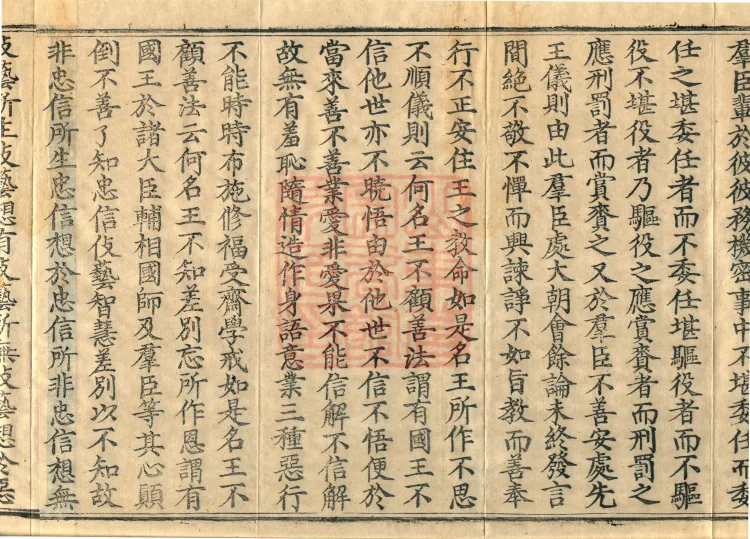 羣臣輩於彼彼務機密事中不堪委任而委
任之堪委任者而不委任堪驅役者而不驅
役不堪役者乃驅役之應賞賚者而刑罰之
應刑罰者而賞賚之又於羣臣不善安處先
王儀則由此羣臣處大朝會餘論未終發言
間絕不敬不憚而興諫諍不如旨教而善奉
行不正安住王之教命如是名王所作不思
不順儀則云何名王不顧善法謂有國王不
信他世亦不曉悟由於他世不信不悟便於
當來善不善業愛非愛果不能信解不信解
故無有羞恥隨情造作身語意業三種惡行
不能時時布施修福受齋學戒如是名王不
顧善法云何名王不知差別忘所作恩謂有
國王於諸大臣輔相國師及羣臣等其心顚
倒不善了知忠信伎藝智慧差別以不知故
非忠信所生忠信想於忠信所非忠信想無
伎藝所生伎藝想有伎藝所無伎藝想於惡